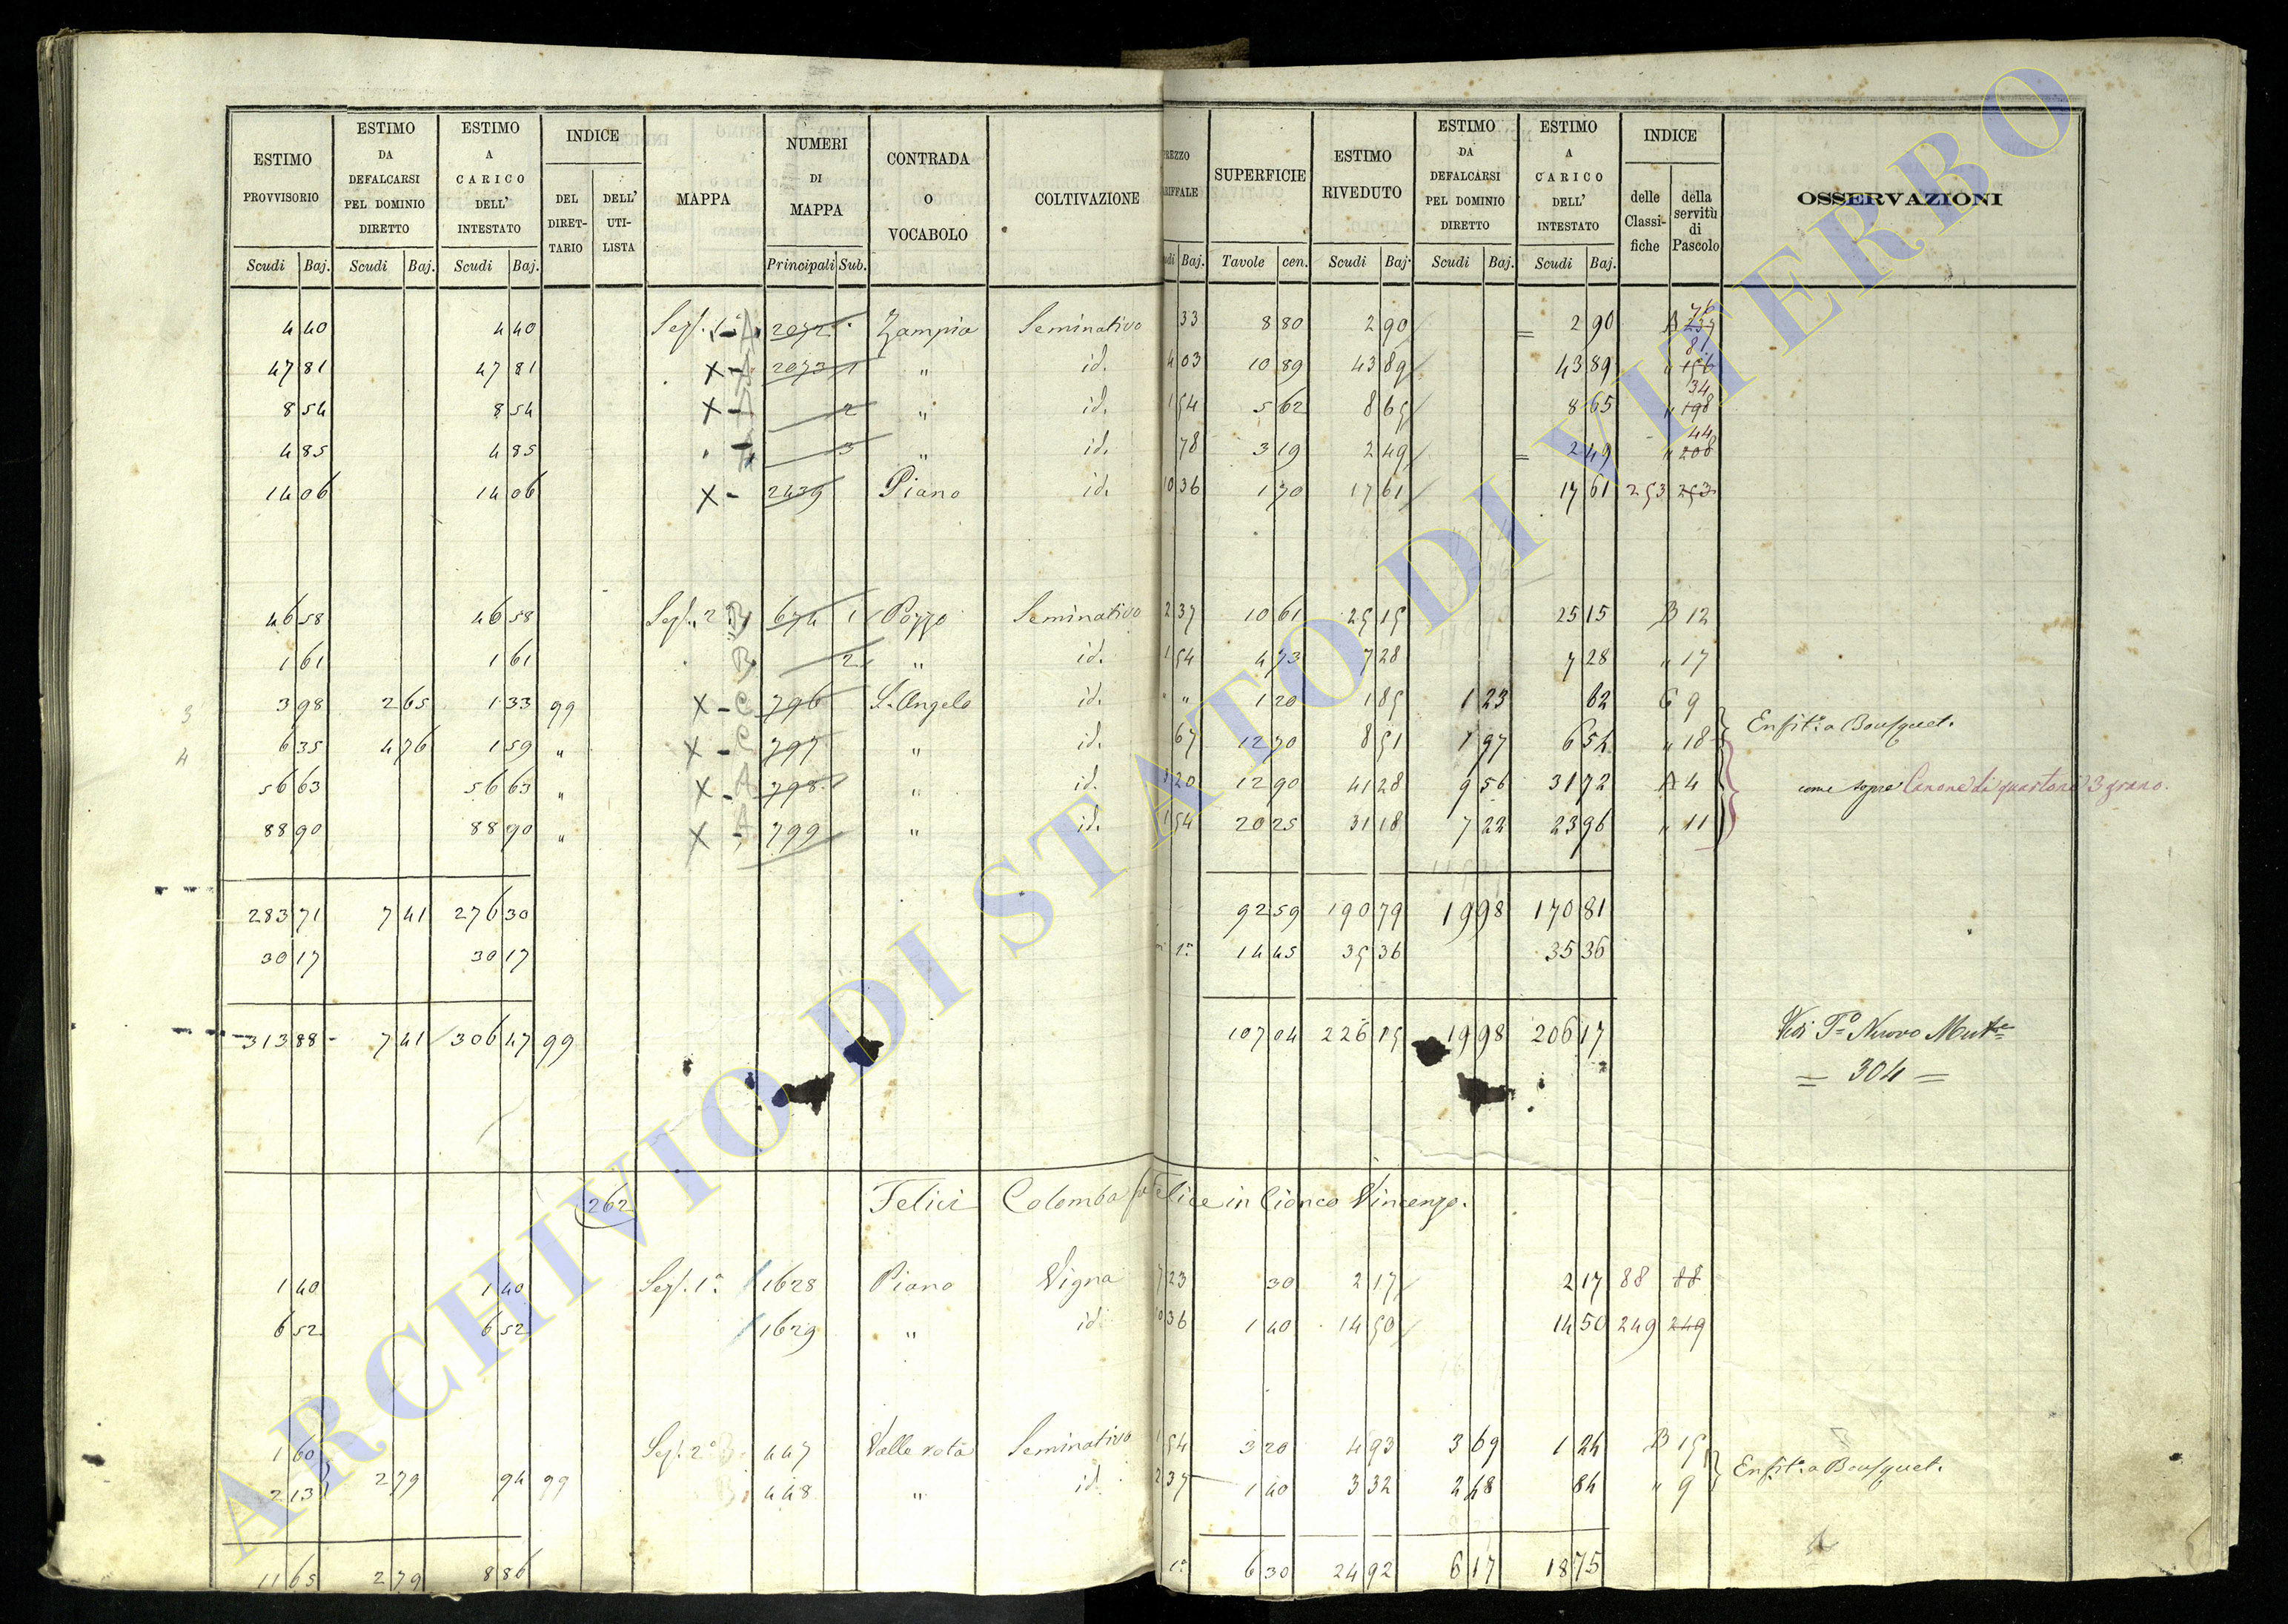 ESTIMO PROVVISORIO | ESTIMO DA DEFALCARSI PEL DOMINIO DIRETTO | ESTIMO A CARICO DELL' INTESTATO | INDICE DEL DIRET-TARIO | DELL' UTI-LISTA | MAPPA | NUMERI DI MAPPA | CONTRADA O VOCABOLO | COLTIVAZIONE | REZZO ARIFFALE | SUPERFICIE | ESTIMO RIVEDUTO | ESTIMO DA DEFALCARSI PEL DOMINIO DIRETTO | ESTIMO A CARICO DELL' INTESTATO | INDICE delle Classi-fiche | della servitù di Pascolo | OSSERVAZIONI
Scudi Baj. | Scudi Baj. | Scudi Baj. | Principali Sub. | udi Baj. | Tavole cen. | Scudi Baj. | Scudi Baj. | Scudi Baj.
4 40 | 4 40 | Sez. 1ª A | 2072 | Zampia | Seminativo | 33 | 8 80 | 2 90 | 2 90 | A 237 76
47 81 | 47 81 | X - A | 2073 1 | " | id. | 4 03 | 10 89 | 43 89 | 43 89 | " 156 81
8 54 | 8 54 | X - A | 2 | " | id. | 1 54 | 5 62 | 8 65 | 8 65 | " 198 34
4 85 | 4 85 | A | 3 | " | id. | 78 | 3 19 | 2 49 | 2 49 | " 208 44
14 06 | 14 06 | X - | 2439 | Piano | id. | 10 36 | 1 70 | 17 61 | 17 61 | 253 253
46 58 | 46 58 | Sez. 2ª B | 674 1 | Pozzo | Seminativo | 2 37 | 10 61 | 25 15 | 25 15 | B 12
1 61 | 1 61 | B | 2 | " | id. | 1 54 | 4 73 | 7 28 | 7 28 | " 17
3 | 3 98 | 2 65 | 1 33 | 99 | X - C | 796 | S. Angelo | id. | " " | 1 20 | 1 85 | 1 23 | 62 | C 9
Enfit. a Bousquet.
4 | 6 35 | 4 76 | 1 59 | " | X - C | 797 | " | id. | 67 | 12 70 | 8 51 | 1 97 | 6 54 | " 18
56 63 | 56 63 | " | X - A | 798 | " | id. | 3 20 | 12 90 | 41 28 | 9 56 | 31 72 | A 4 | come sopra Canone di quartone 3 grano.
88 90 | 88 90 | " | X - A | 799 | " | id. | 1 54 | 20 25 | 31 18 | 7 22 | 23 96 | " 11
283 71 | 7 41 | 276 30 | 92 59 | 190 79 | 19 98 | 170 81
30 17 | 30 17 | 1ª | 14 45 | 35 36 | 35 36
313 88 | 7 41 | 306 47 | 99 | 107 04 | 226 15 | 19 98 | 206 17 | Vedi Pº Nuovo Mutre
= 304 =
262 | Felici Colomba fu Felice in Cionco Vincenzo.
1 40 | 1 40 | Sez. 1ª | 1628 | Piano | Vigna | 7 23 | 30 | 2 17 | 2 17 | 88 88
6 52 | 6 52 | 1629 | " | id. | 10 36 | 1 40 | 14 50 | 14 50 | 249 249
1 60 | Sez. 2ª B | 447 | Valle rotà | Seminativo | 1 54 | 3 20 | 4 93 | 3 69 | 1 24 | B 15
Enfit. a Bousquet.
2 13 | 2 79 | 94 | 99 | B | 448 | " | id. | 2 37 | 1 40 | 3 32 | 2 48 | 84 | " 9
11 65 | 2 79 | 8 86 | 1ª | 6 30 | 24 92 | 6 17 | 18 75
ARCHIVIO DI STATO DI VITERBO